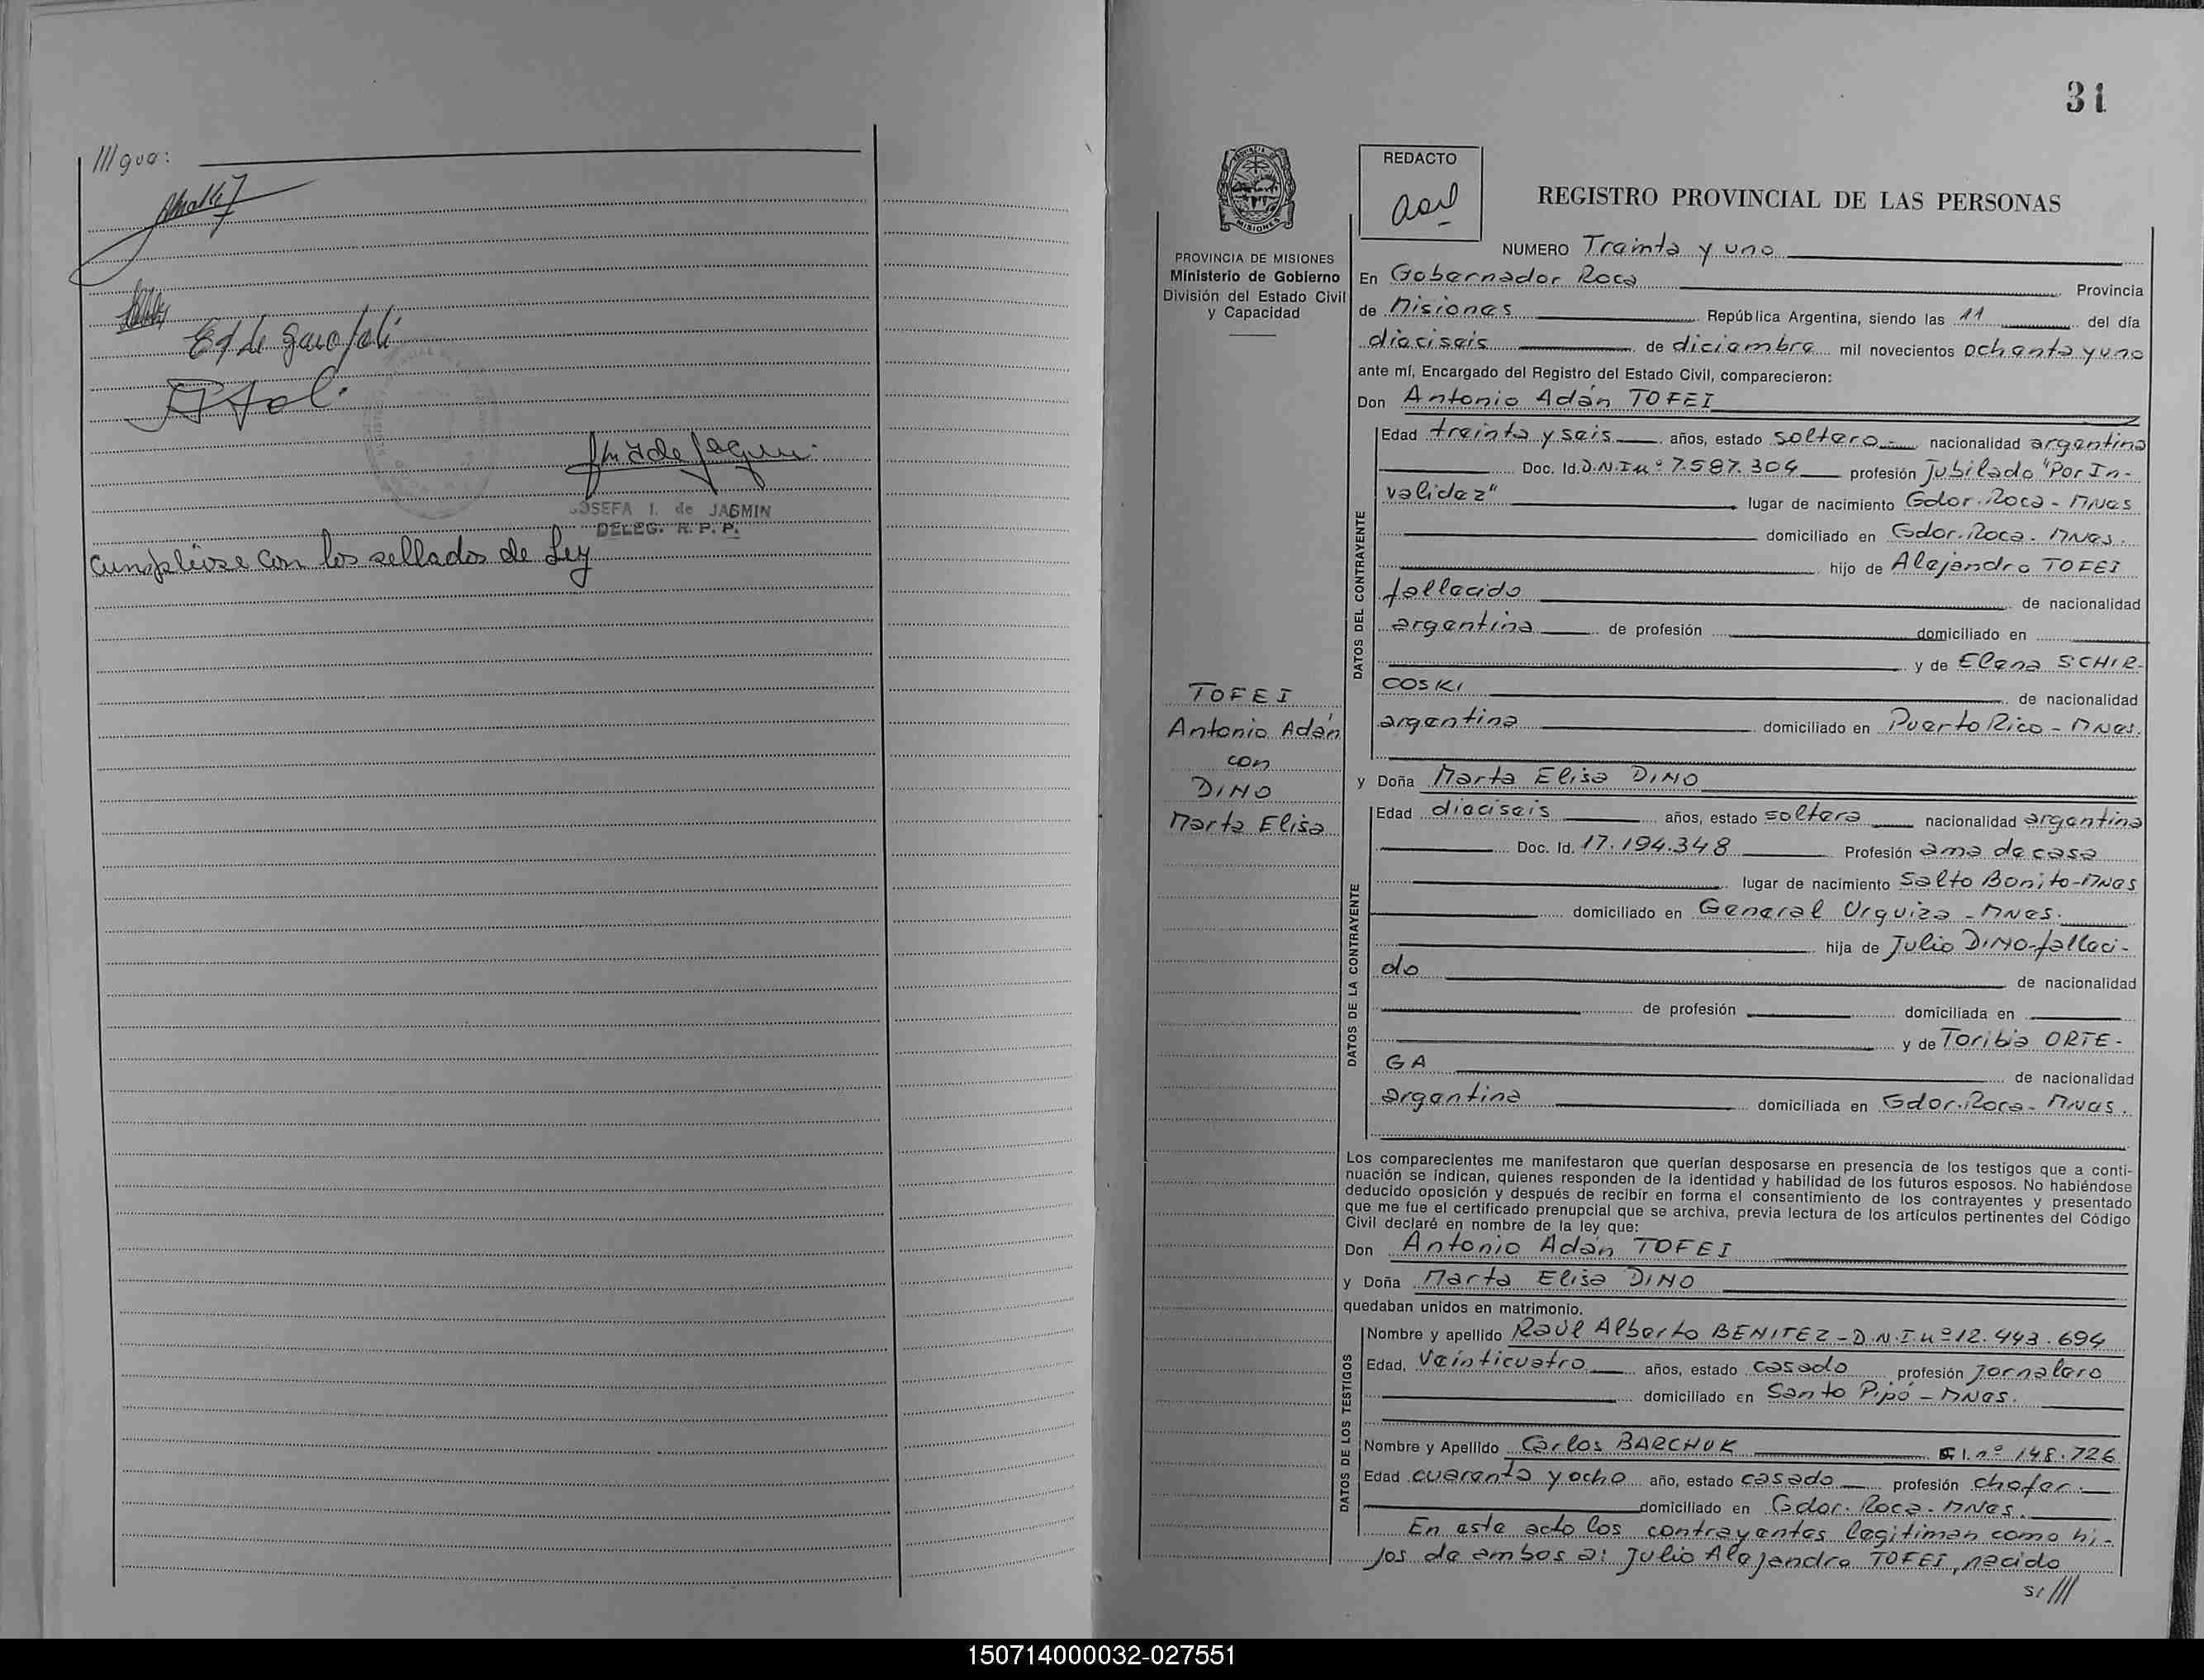 ///gua:
Et de Garofoli
JOSEFA I. de JASMIN
DELEG. R. P. P.
Cumpliose con los sellados de Ley
31
REDACTO
REGISTRO PROVINCIAL DE LAS PERSONAS
MISIONES
PROVINCIA DE MISIONES
Ministerio de Gobierno
División del Estado Civil
y Capacidad
TOFEI
Antonio Adán
con
DINO
Marta Elisa
NUMERO Treinta y uno
En Gobernador Roca Provincia
de Misiones República Argentina, siendo las 11 del día
dieciseis de diciembre mil novecientos ochenta y uno
ante mí, Encargado del Registro del Estado Civil, comparecieron:
Don Antonio Adán TOFEI
DATOS DEL CONTRAYENTE
Edad treinta y seis años, estado soltero nacionalidad argentina
Doc. Id. D.N.I nº 7.587.304 profesión Jubilado "Por In-
validez" lugar de nacimiento Gdor. Roca - Mnes
domiciliado en Gdor. Roca - Mnes.
hijo de Alejandro TOFEI
fallecido de nacionalidad
argentina de profesión domiciliado en
y de Elena SCHIR-
COSKI de nacionalidad
argentina domiciliado en Puerto Rico - Mnes.
y Doña Marta Elisa DINO
DATOS DE LA CONTRAYENTE
Edad dieciseis años, estado soltera nacionalidad argentina
Doc. Id. 17.194.348 Profesión ama de casa
lugar de nacimiento Salto Bonito - Mnes
domiciliado en General Urquiza - Mnes.
hija de Julio DINO - falleci-
do de nacionalidad
de profesión domiciliada en
y de Toribia ORTE-
GA de nacionalidad
argentina domiciliada en Gdor. Roca - Mnes.
Los comparecientes me manifestaron que querían desposarse en presencia de los testigos que a conti-
nuación se indican, quienes responden de la identidad y habilidad de los futuros esposos. No habiéndose
deducido oposición y después de recibir en forma el consentimiento de los contrayentes y presentado
que me fue el certificado prenupcial que se archiva, previa lectura de los artículos pertinentes del Código
Civil declaré en nombre de la ley que:
Don Antonio Adán TOFEI
y Doña Marta Elisa DINO
quedaban unidos en matrimonio.
DATOS DE LOS TESTIGOS
Nombre y apellido Raúl Alberto BENITEZ - D.N.I. nº 12.443.694
Edad, Veinticuatro años, estado casado profesión Jornalero
domiciliado en Santo Pipó - Mnes.
Nombre y Apellido Carlos BARCHUK C.I. nº 148.726
Edad cuarenta y ocho año, estado casado profesión chofer.
domiciliado en Gdor. Roca - Mnes.
En este acto los contrayentes legitiman como hi-
jos de ambos a: Julio Alejandro TOFEI, nacido
si///
150714000032-027551